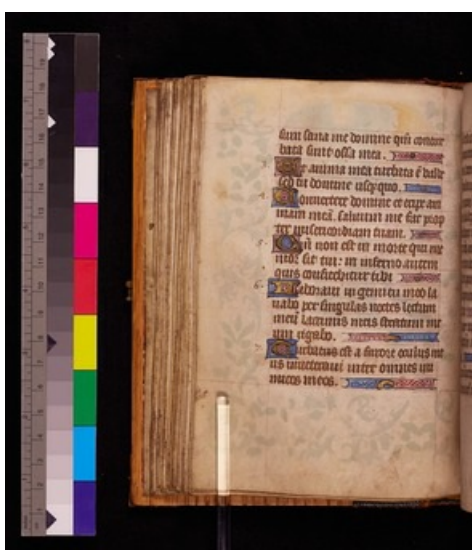 sum sana me domine qm contur
bata sunt ossa mea.
Et anima mea turbata e valde
sed tu domine usquequo.
Convertere domine et eripe ani
mam mea. salvum me fac prop
ter misericordiam tuam.
Qm non est in morte qui me
mor sit tui: in inferno autem
quis confitebitur tibi
Laboravi in gemitu meo la
vabo per singulas noctes lectum
meu lacrimis meis stratum me
um rigabo.
Turbatus est a furore oculus me
us inveteravi inter omnes ini
micos meos.